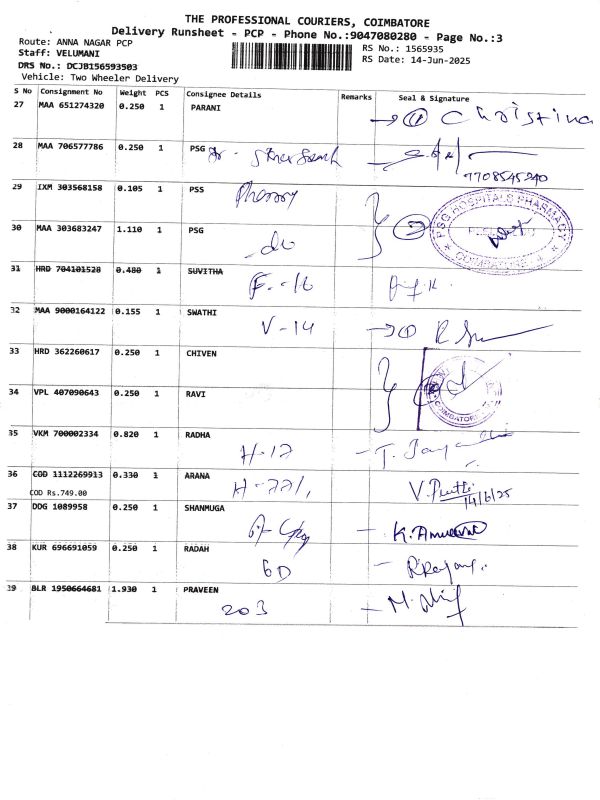 THE PROFESSIONAL COURIERS, COIMBATORE
Delivery Runsheet - PCP - Phone No.:9047080280 - Page No.:3
Route: ANNA NAGAR PCP
Staff: VELUMANI
DRS No.: DCJB156593503
Vehicle: Two Wheeler Delivery
RS No.: 1565935
RS Date: 14-Jun-2025
S No Consignment No Weight PCS Consignee Details Remarks Seal & Signature
27 MAA 651274320 0.250 1 PARANI Christina
28 MAA 706577786 0.250 1 PSG
7708545240
29 IXM 303568158 0.105 1 PSS
PSG HOSPITALS PHARMACY
COIMBATORE
30 MAA 303683247 1.110 1 PSG
31 HRD 704101528 0.480 1 SUVITHA
32 MAA 9000164122 0.155 1 SWATHI
V-14
33 HRD 362260617 0.250 1 CHIVEN
34 VPL 407090643 0.250 1 RAVI
COIMBATORE
35 VKM 700002334 0.820 1 RADHA
H-12
36 COD 1112269913 0.330 1 ARANA
COD Rs.749.00
14/6/25
37 DDG 1089958 0.250 1 SHANMUGA
38 KUR 696691059 0.250 1 RADAH
6D
39 BLR 1950664681 1.930 1 PRAVEEN
203